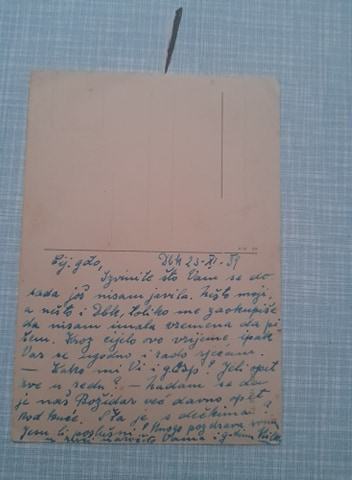 Cij. gđo, Dbk 23-XI-51
Izvinite što Vam se do
sada još nisam javila. Nešto moji,
a nešto i Dbk, toliko me zaokupiše
da nisam imala vremena da pi
šem. Kroz cijelo ovo vrijeme ipak
Vas se ugodno i rado sjećam.
— Kako mi Vi i gosp? Jeli opet
sve u redu? — Nadam se da
je naš Božidar već davno opet
kod kuće. Šta je s dečkima?
Jesu li poslušni? Mnogo pozdrava
naročito Vama i